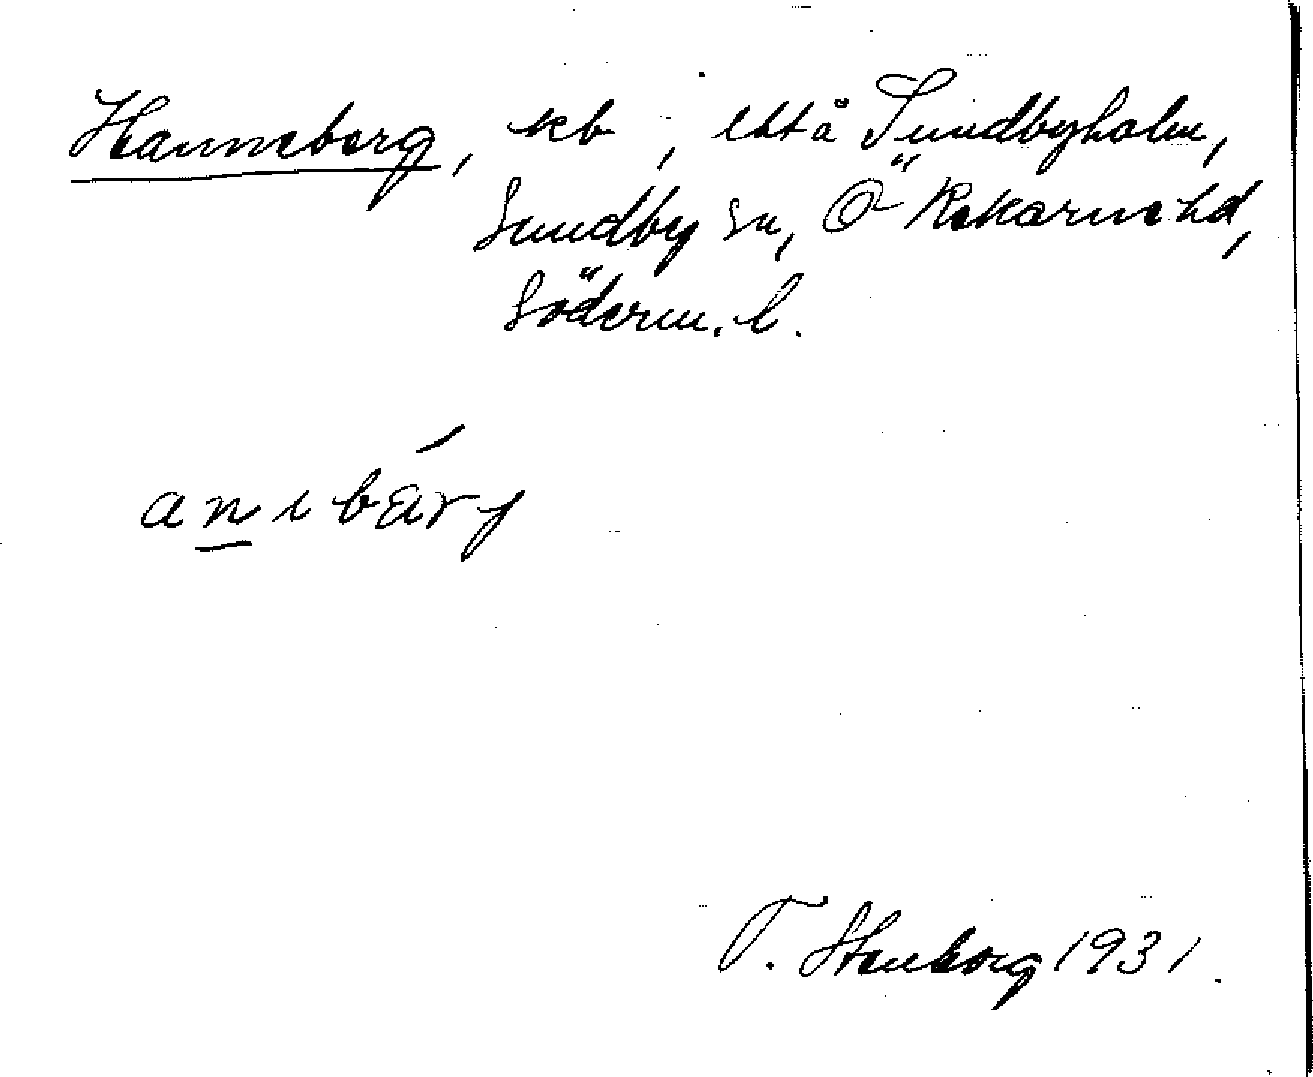 Hanneberg, kb, etta Sundbyholm,
Sundby sn, Ö Rekarne hd,
Söderm. l.
anebärj
T. Stenborg 1931.